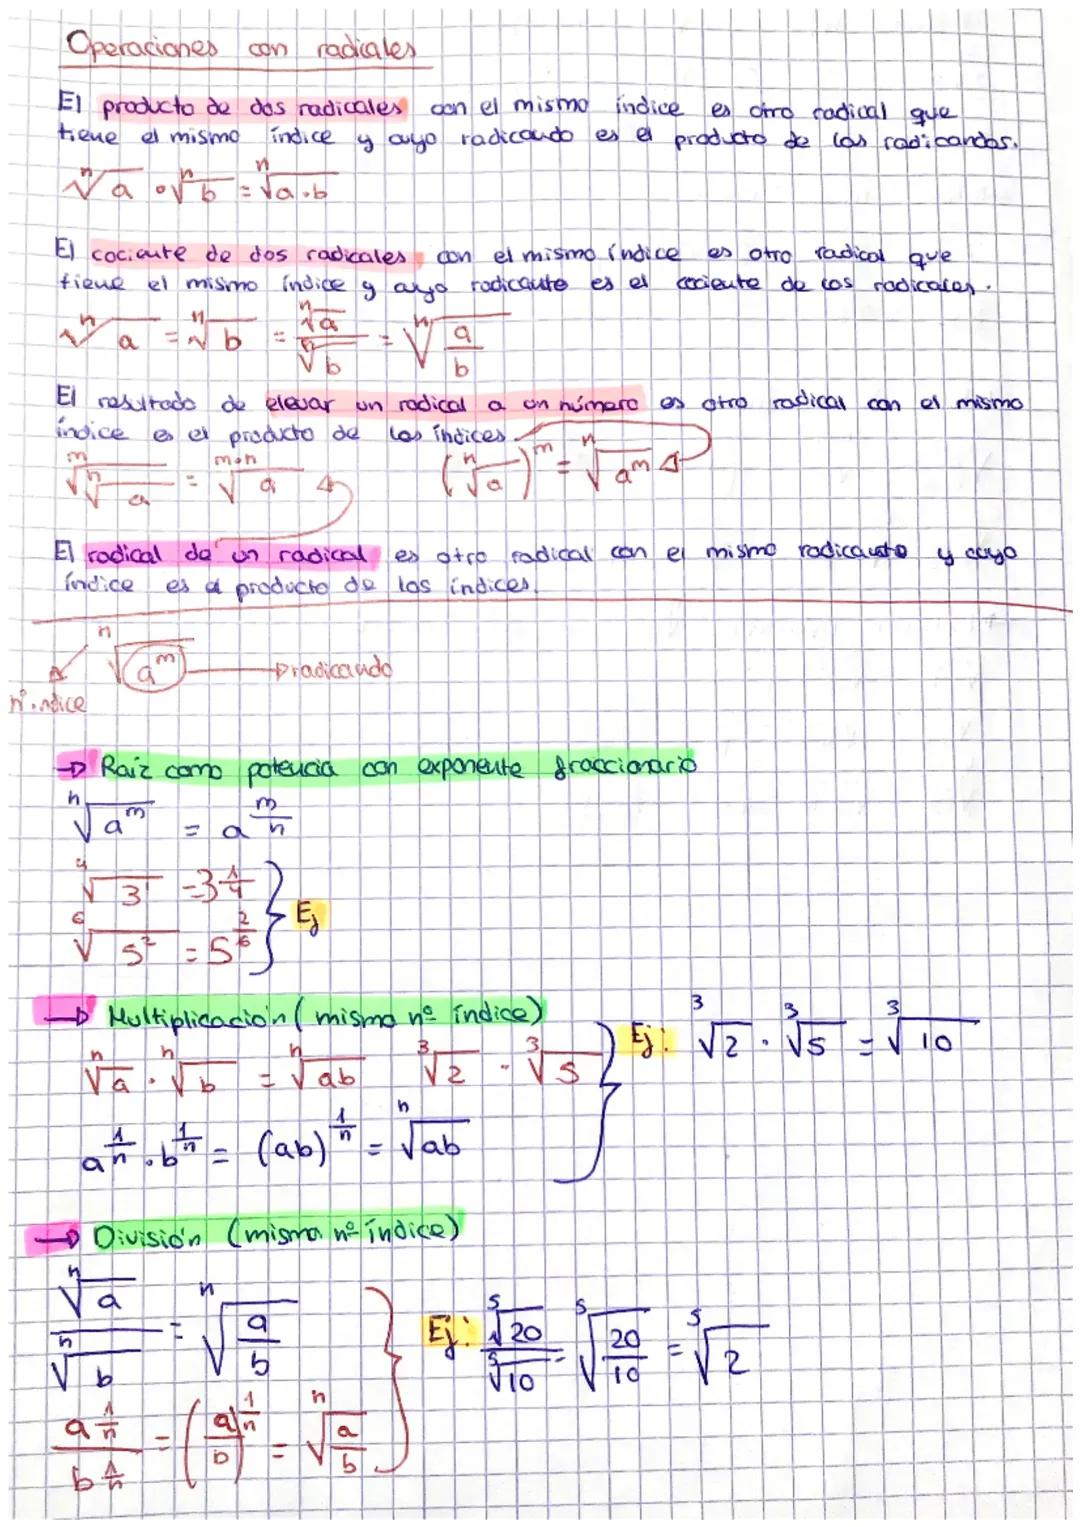 Operaciones con radicales
El producto de dos radicales con el mismo índice es otro radical que
tiene el mismo índice y cuyo radicando es el producto de los radicandos.
ⁿ√a · ⁿ√b = ⁿ√a·b
El cociente de dos radicales con el mismo índice es otro radical que
tiene el mismo índice y cuyo radicante es el cociente de los radicales.
ⁿ√a = ⁿ√b = ⁿ√a / ⁿ√b = ⁿ√(a/b)
El resultado de elevar un radical a un número es otro radical con el mismo
índice es el producto de los índices.
ᵐ√ⁿ√a = ᵐ·ⁿ√a (ⁿ√a)ᵐ = ⁿ√aᵐ
El radical de un radical es otro radical con el mismo radicante y cuyo
índice es el producto de los índices.
ⁿ√aᵐ → radicando
nº índice
→ Raíz como potencia con exponente fraccionario
ⁿ√aᵐ = a^(m/n)
⁴√3 = 3^(1/4)
⁶√5² = 5^(2/6) Ej
→ Multiplicación (mismo nº índice)
ⁿ√a · ⁿ√b = ⁿ√ab ³√2 · ³√5 Ej: ³√2 · ³√5 = ³√10
a^(1/n) · b^(1/n) = (ab)^(1/n) = ⁿ√ab
→ División (mismo nº índice)
ⁿ√a / ⁿ√b = ⁿ√(a/b) Ej: ⁵√20 / ⁵√10 = ⁵√(20/10) = ⁵√2
a^(1/n) / b^(1/n) = (a/b)^(1/n) = ⁿ√(a/b)